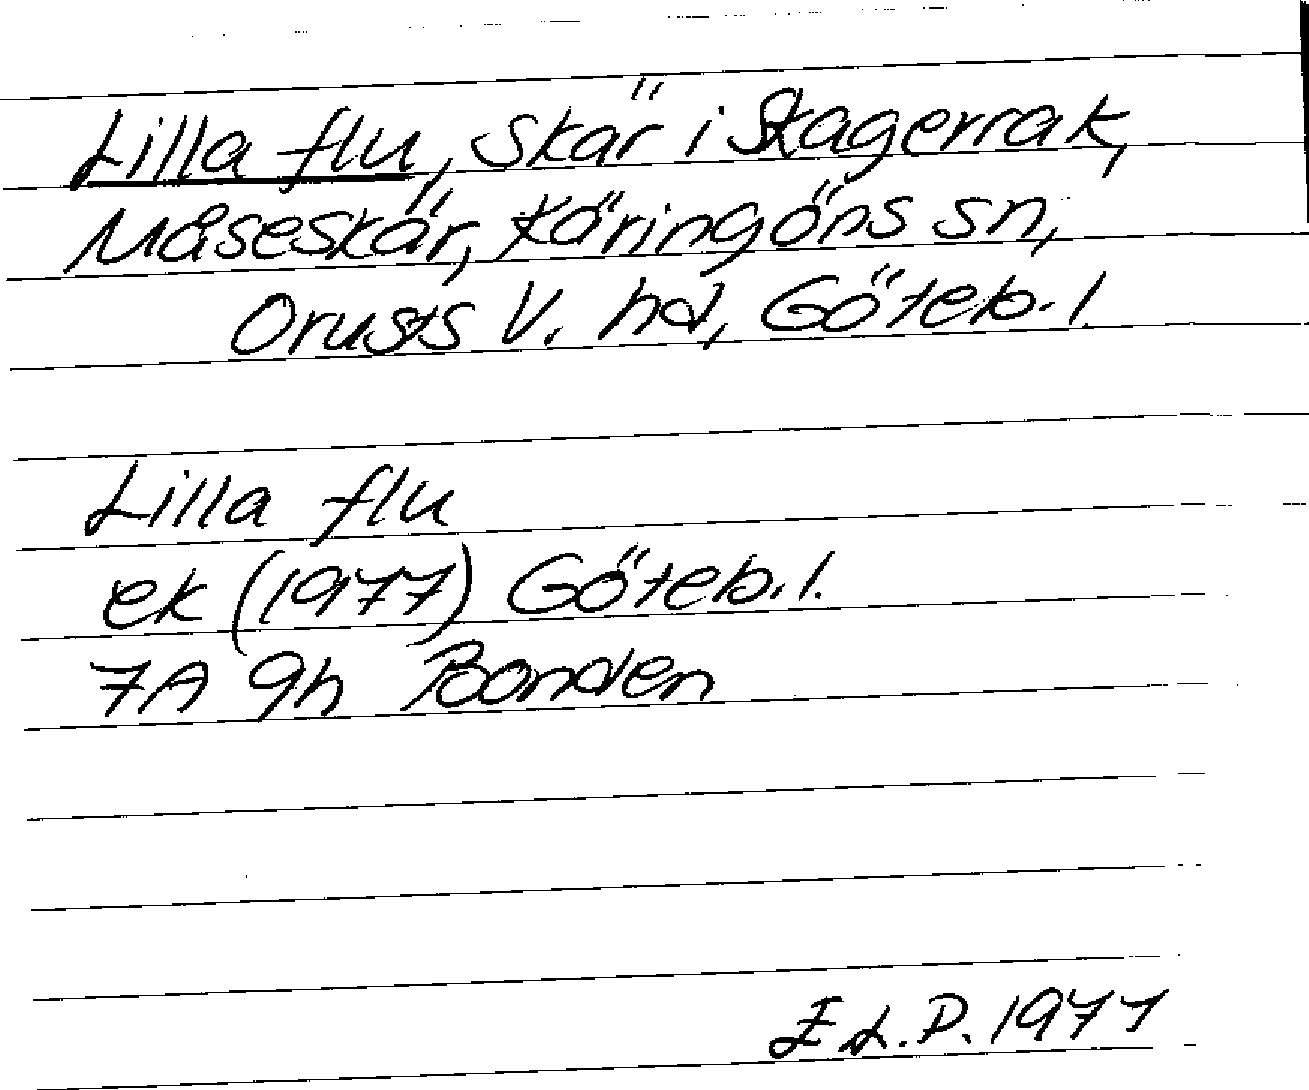 Lilla flu, skär i Skagerrak,
Måseskär, Käringöns sn,
Orusts V. hd, Göteb. l.
Lilla flu
ek (1977) Göteb. l.
7A 9h Bonden
E L. P. 1977